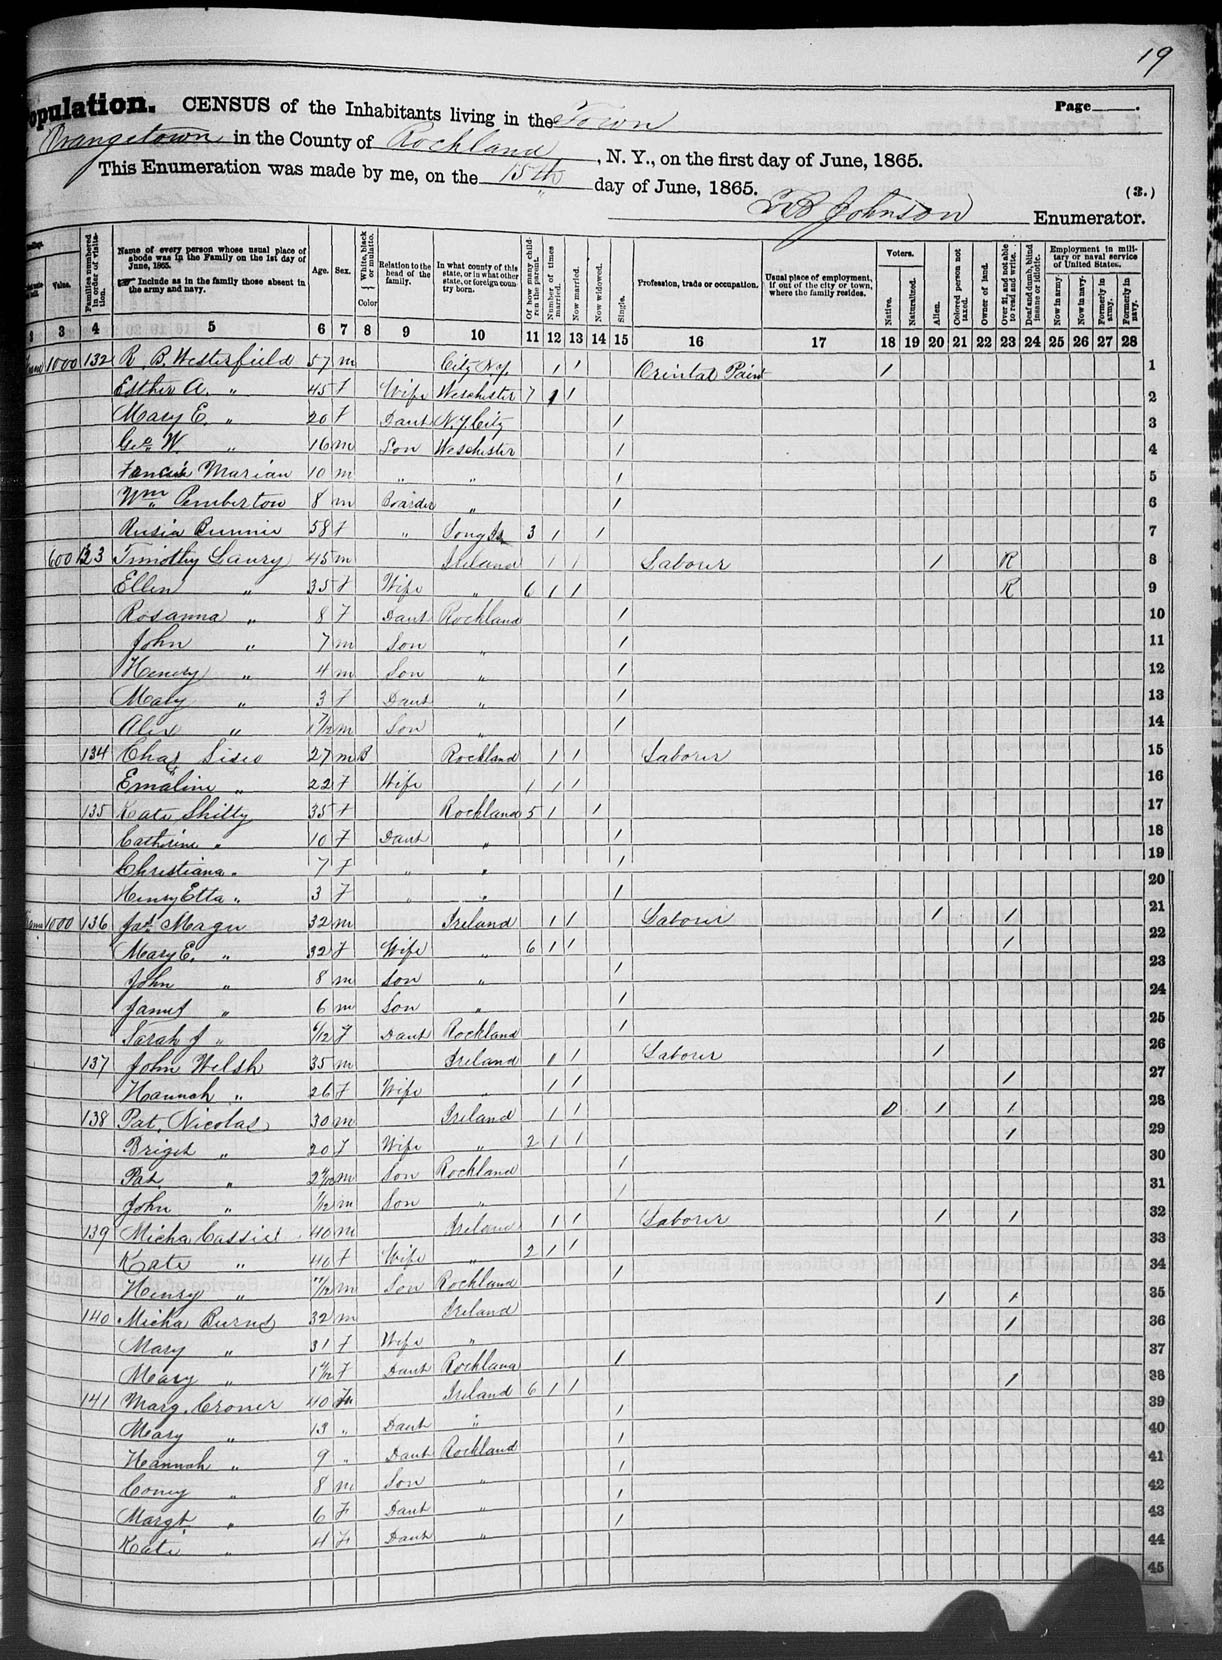 19
Population. CENSUS of the Inhabitants living in the Town Page ____.
Orangetown in the County of Rockland, N. Y., on the first day of June, 1865.
This Enumeration was made by me, on the 15th day of June, 1865. (3.)
Johnson Enumerator.
Value.
Families numbered in order of visitation.
Name of every person whose usual place of abode was in the Family on the 1st day of June, 1865.
Include as in the family those absent in the army and navy.
Age.
Sex.
White, black or mulatto.
Color
Relation to the head of the family.
In what county of this state, or in what other state, or foreign country born.
Of how many children the parent.
Number of times married.
Now married.
Now widowed.
Single.
Profession, trade or occupation.
Usual place of employment, if out of the city or town, where the family resides.
Voters.
Native.
Naturalized.
Alien.
Colored person not taxed.
Owner of land.
Over 21, and not able to read and write.
Deaf and dumb, blind insane or idiotic.
Employment in military or naval service of United States.
Now in army.
Now in navy.
Formerly in army.
Formerly in navy.
3 4 5 6 7 8 9 10 11 12 13 14 15 16 17 18 19 20 21 22 23 24 25 26 27 28
1000 132 R. B. Westerfield 57 m City N.Y. 1 1 1 1
Esther A. " 45 f Wife Weschester 7 1 1 2
Mary E. " 20 f Daut N.Y. City 1 3
Geo W. " 16 m Son Weschester 1 4
Marian 10 m " " 1 5
Wm Pemberton 8 m Boarder " 1 6
58 f " 3 1 1 7
600 Timothy 45 m Ireland 1 1 Laborer 1 R 8
Ellen " 35 f Wife " 6 1 1 R 9
Rosanna " 8 f Daut Rockland 1 10
John " 7 m Son " 1 11
Henery " 4 m Son " 1 12
Mary " 3 f Daut " 1 13
Alex " m Son " 1 14
134 Chas Siseo 27 m B Rockland 1 1 Laborer 15
Emaline " 22 f Wife 1 1 1 16
135 Kate Shilty 35 f Rockland 5 1 1 17
Catherine " 10 f Daut " 1 18
Christiana " 7 f " " 1 19
Henry Etta " 3 f " " 1 20
1000 136 Jas. Magu 32 m Ireland 1 1 Laborer 1 1 21
Mary E. " 32 f Wife " 6 1 1 1 22
John " 8 m Son " 1 23
James " 6 m Son " 1 24
Sarah J " 6/12 f Daut Rockland 1 25
137 John Welsh 35 m Ireland 1 1 Laborer 1 26
Hannah " 26 f Wife " 1 1 1 27
138 Pat. Nicolas 30 m Ireland 1 1 1 1 28
Briget " 20 f Wife " 2 1 1 1 29
Pat. " m Son Rockland 1 30
John " 1/12 m Son " 1 31
139 Micha Cassid 40 m Ireland 1 1 Laborer 1 1 32
Kate " 40 f Wife " 2 1 1 33
Henry " m Son Rockland 1 34
140 Micha Burns 32 m Ireland 1 1 35
Mary " 31 f Wife " 1 36
Mary " f Daut Rockland 1 37
141 Marg. Croner 40 Ireland 6 1 1 1 38
Mary " 13 " Daut " 1 39
Hannah " 9 " Daut Rockland 1 40
Coney " 8 m Son " 1 41
Margt. " 6 F Daut " 1 42
Kate " 4 F Daut " 1 43
44
45